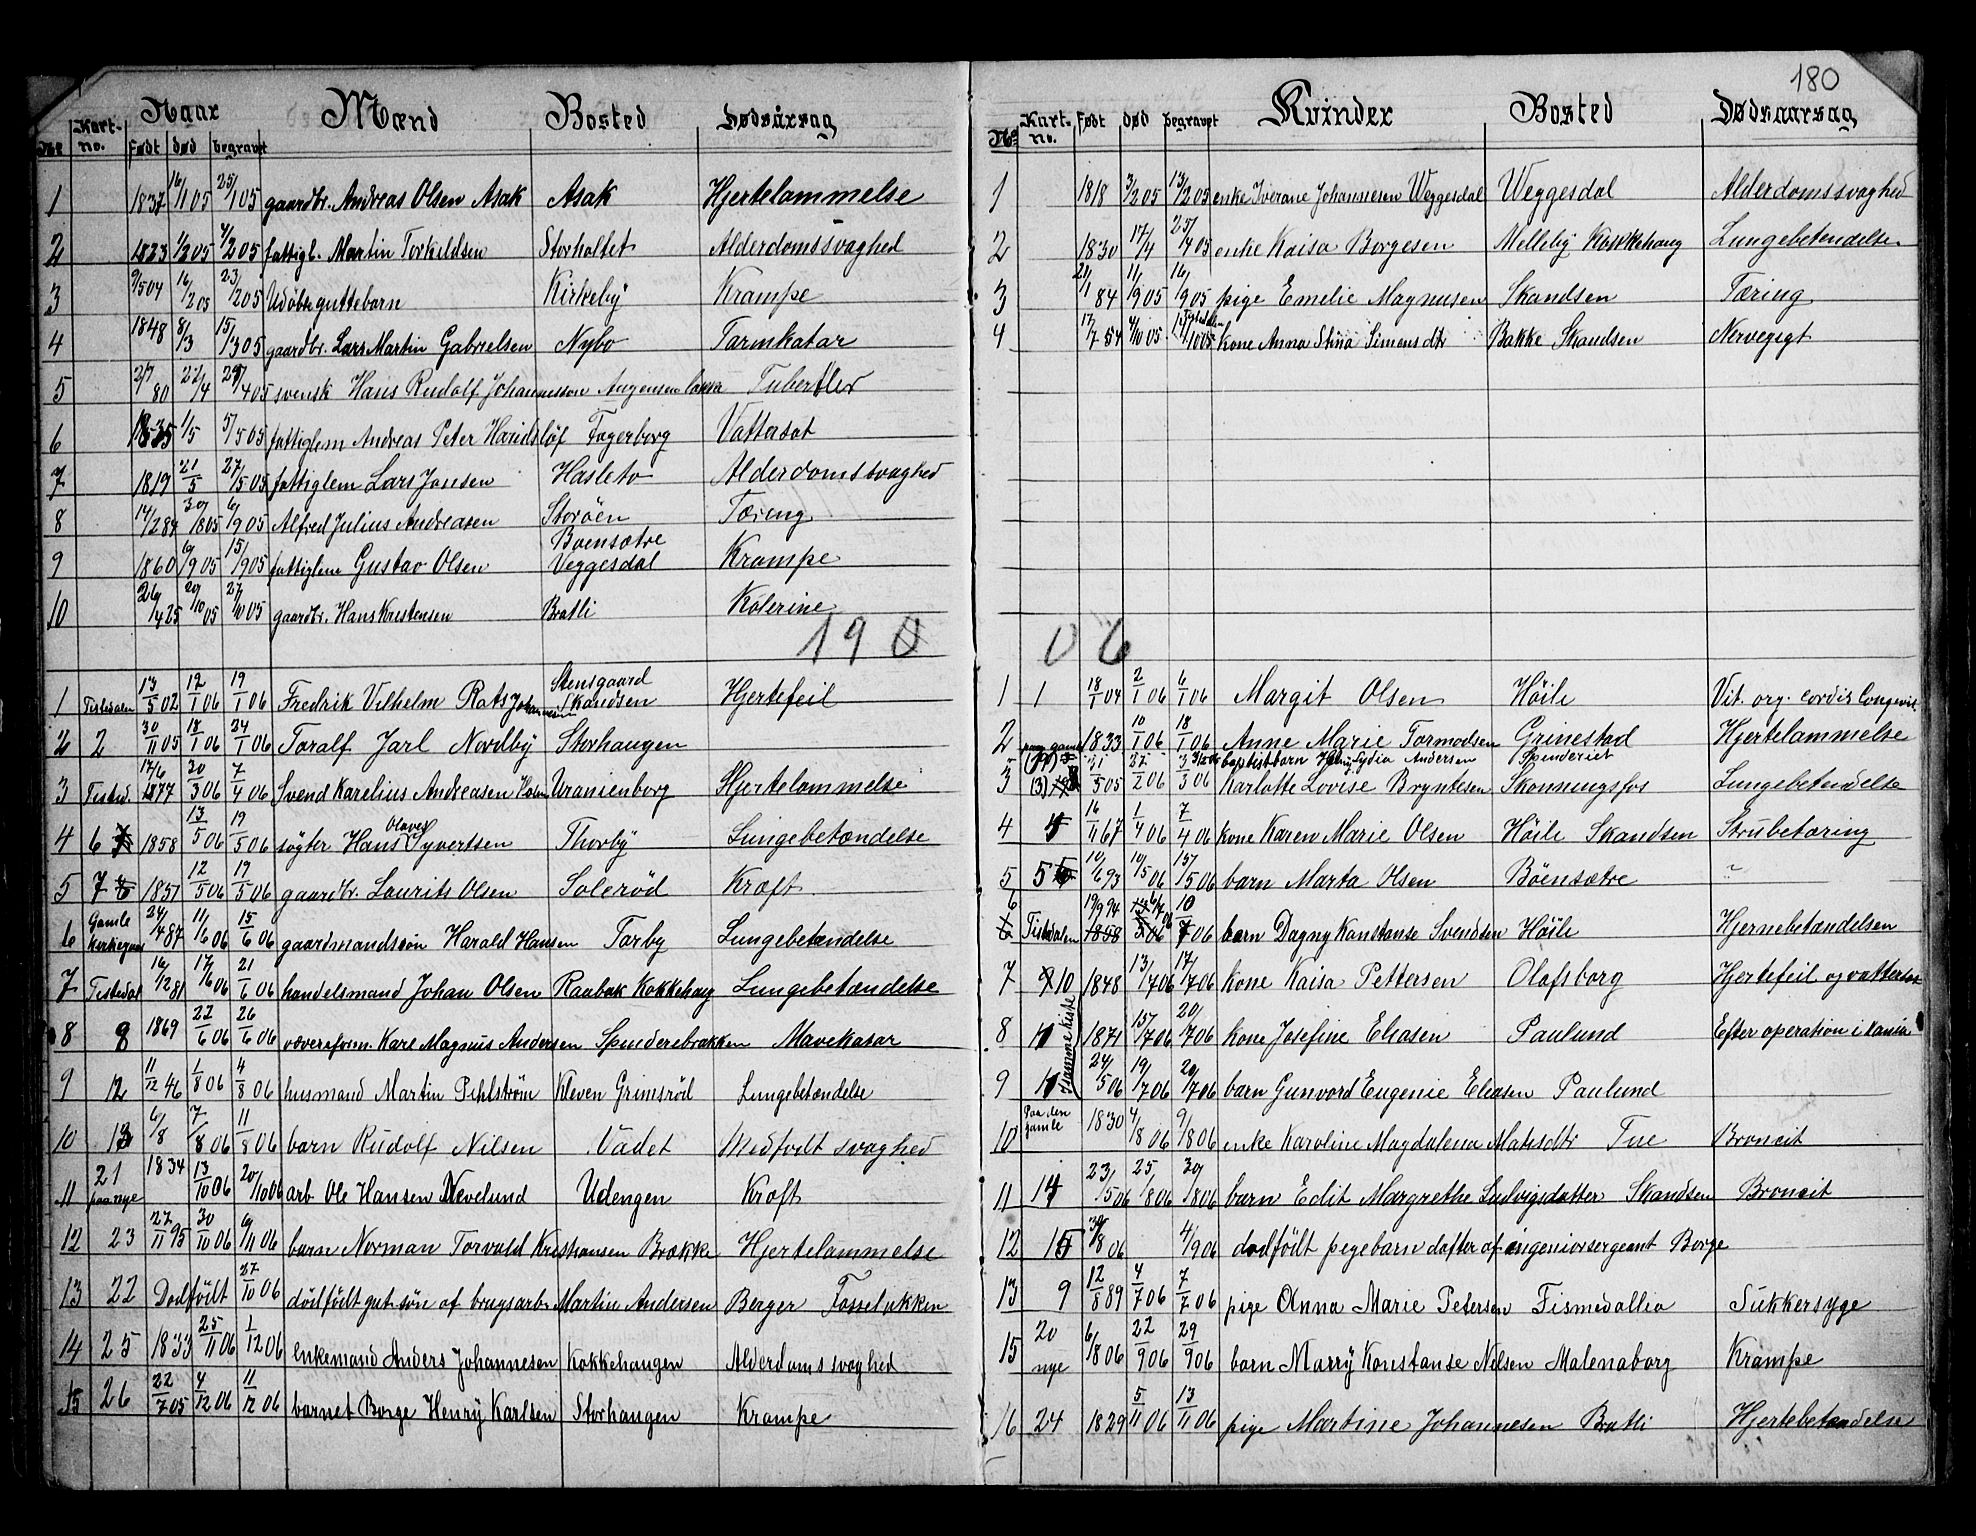 180
Naar Mænd Bosted Dødsårsag
No Kart-no. Født død begravet
1 1837 16/1 05 25/1 05 gaardbr. Andreas Olsen Asak Asak Hjertelammelse
2 1823 1/2 05 4/2 05 fattigl. Martin Torkildsen Storholtet Alderdomssvaghed
3 9/5 04 16/2 05 23/2 05 Udöbt guttebarn Kirkeby Krampe
4 1848 8/3 15/3 05 gaardbr. Lars Martin Gabrielsen Nybo Tarmkatar
5 2/7 80 22/4 29/4 05 svensk Hans Rudolf Johannesson Tuberkler
6 1835 1/5 5/5 05 fattiglem Andreas Peter Fagerborg Vattersot
7 1819 21/5 27/5 05 fattiglem Lars Jansen Hasleto Alderdomssvaghed
8 14/2 84 30/8 05 6/9 05 Alfred Julius Andreasen Storöen Tæring
9 1860 9/9 05 15/9 05 fattiglem Gustav Olsen Boensætre Veggesdal Krampe
10 26/4 25 20/10 05 27/10 05 gaardbr. Hans Kristensen Bratli Kolerine
1906
1 Tistedalen 13/5 02 12/1 06 19/1 06 Fredrik Vilhelm Rats Johannesen Stensgaard Skandsen Hjertefeil
2 2 30/11 05 18/1 06 24/1 06 Toralf Jarl Nordby Storhaugen
3 Tisted. 17/6 1877 30/3 06 7/4 06 Svend Karelius Andreasen Holm Uranienborg Hjertelammelse
4 6 1858 13/5 06 19/5 06 søgter Hans Olaves Syvertsen Thorby Lungebetændelse
5 7 1851 12/5 06 19/5 06 gaardbr. Laurits Olsen Solerød Kræft
6 Gamle kirkegaard 24/4 87 11/6 06 15/6 06 gaardmandssön Harald Hansen Torby Lungebetændelse
7 Tistedal 16/12 81 17/6 06 21/6 06 handelsmand Johan Olsen Raabak Kokkehaug Lungebetændelse
8 8 1869 22/6 06 26/6 06 væveriform. Karl Magnus Andersen Spinderebrakken Mavekatar
9 12 11/12 46 1/8 06 4/8 06 husmand Martin Pihlström Kleven Grimsröd Lungebetændelse
10 13 6/8 7/8 06 11/8 06 barn Rudolf Nilsen Vadet Medfödt svaghed
11 21 paa nye 1834 13/10 06 20/10 06 arb Ole Hansen Nevelund Udengen Kræft
12 23 27/11 95 30/10 06 6/11 06 barn Norman Torvald Kristiansen Brække Hjertelammelse
13 22 Dødfödt 27/10 06 dödfödt gut sön af brugsarb. Martin Andersen Berger Fosselökken
14 25 1833 25/11 06 1/12 06 enkemand Anders Johannesen Kokkehaugen Alderdomssvaghed
15 26 22/7 05 4/12 06 11/12 06 barnet Borge Henry Karlsen Storhaugen Krampe
Kvinder Bosted Dødsaarsag
No Kart-no. Født død begravet
1 1818 3/2 05 13/2 05 enke Iverane Johannesen Weggesdal Weggesdal Alderdomssvaghed
2 1830 17/4 25/4 05 enke Kaisa Borgesen Melleby Kokkehaug Lungebetendelse.
3 21/1 84 11/9 05 16/9 05 pige Emelie Magnusen Skandsen Tæring
4 17/7 54 4/10 05 14/10 05 Tistedalen kone Anna Stina Simensdtr Bakke Skandsen Nervegigt
1 1 18/1 04 2/1 06 6/1 06 Margit Olsen Höile Vit. org. cordis
2 paa gamle 1833 10/1 06 18/1 06 Anne Marie Tormodsen Grinestad Hjertelammelse
baptistbarn Lydia Andersen Spinderiet
3 (3) 21/5 05 27/2 06 3/3 06 Karlotte Lovise Bryntesen Skonningsfos Lungebetendelse
4 4 16/11 67 1/4 06 7/4 06 kone Karen Marie Olsen Höile Skandsen Strubetæring
5 5 10/6 93 10/5 06 15/5 06 barn Marta Olsen Böensætre "
6 Tistedalen 19/9 94 6/7 06 10/7 06 barn Dagny Konstanse Svendsen Höile Hjernebetændelsen
7 10 1848 13/7 06 17/7 06 kone Kaisa Pettersen Olafsborg Hjertefeil og vattersot
8 11 Samme kiste 1871 15/7 06 20/7 06 kone Josefine Eliasen Paulund Efter operation i Kania
9 11 24/5 06 19/7 06 20/7 06 barn Gunvord Eugenie Eliasen Paulund
10 Paa den gamle 1830 4/8 06 9/8 06 enke Karoline Magdalena Matisdtr Tue Broncit
11 14 23/5 06 25/8 06 30/8 06 barn Edit Margrethe Ludvigsdatter Skandsen Broncit
12 15 30/8 06 4/9 06 dødfödt pigebarn dotter af ingeniorsergeant Borge
13 9 12/8 89 4/7 06 7/7 06 pige Anna Marie Petersen Fismedallia Sukkersyge
15 20 nye 6/8 06 22/9 06 29/9 06 barn Marry Konstanse Nilsen Malenaborg Krampe
16 24 1829 5/11 06 13/11 06 pige Martine Johannesen Bratli Hjertebetændelse